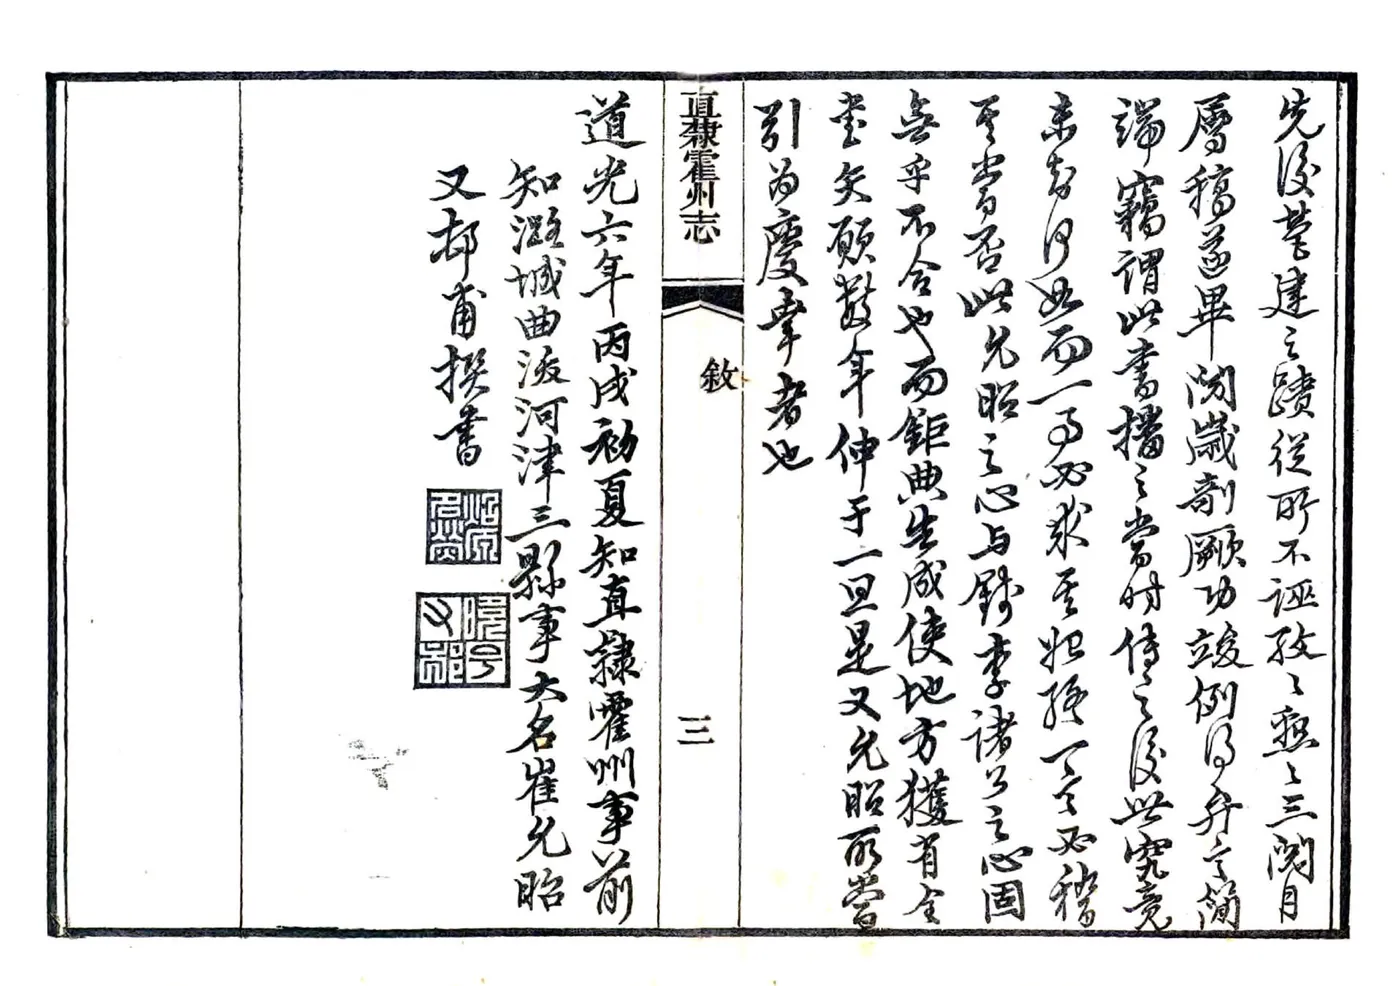 先後營建之蹟從所不誣孜〻懃〻三閱月
層稿遂畢閱歲剞劂功竣例得弁言簡
端竊謂此書播之當時傳之後世究竟
未知何如而一事必求其始終一言必稽
其當否此允昭之心與錢李諸公之心固
無乎不合也而鉅典告成使地方獲有全
書矣願數年伸于一旦是又允昭所當
引為慶幸者也
直隸霍州志
敘
三
道光六年丙戌初夏知直隸霍州事前
知潞城曲沃河津三縣事大名崔允昭
又邨甫撰書